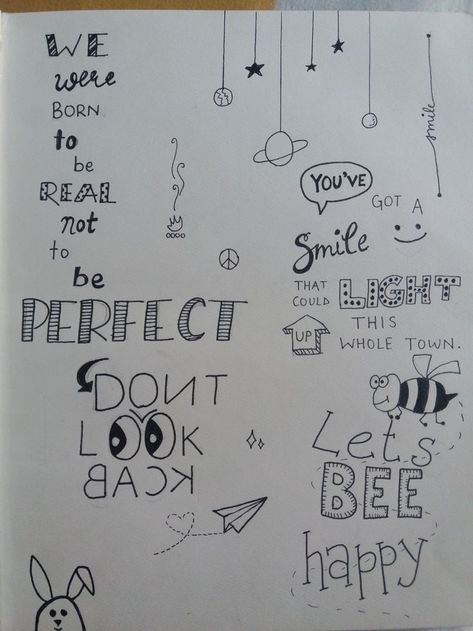 WE
were
BORN
to
be
REAL
not
to
be
PERFECT
DONT
LOOK
BACK
smile
YOU'VE
GOT A
Smile
THAT
COULD
LIGHT
UP
THIS
WHOLE TOWN.
Lets
BEE
happy